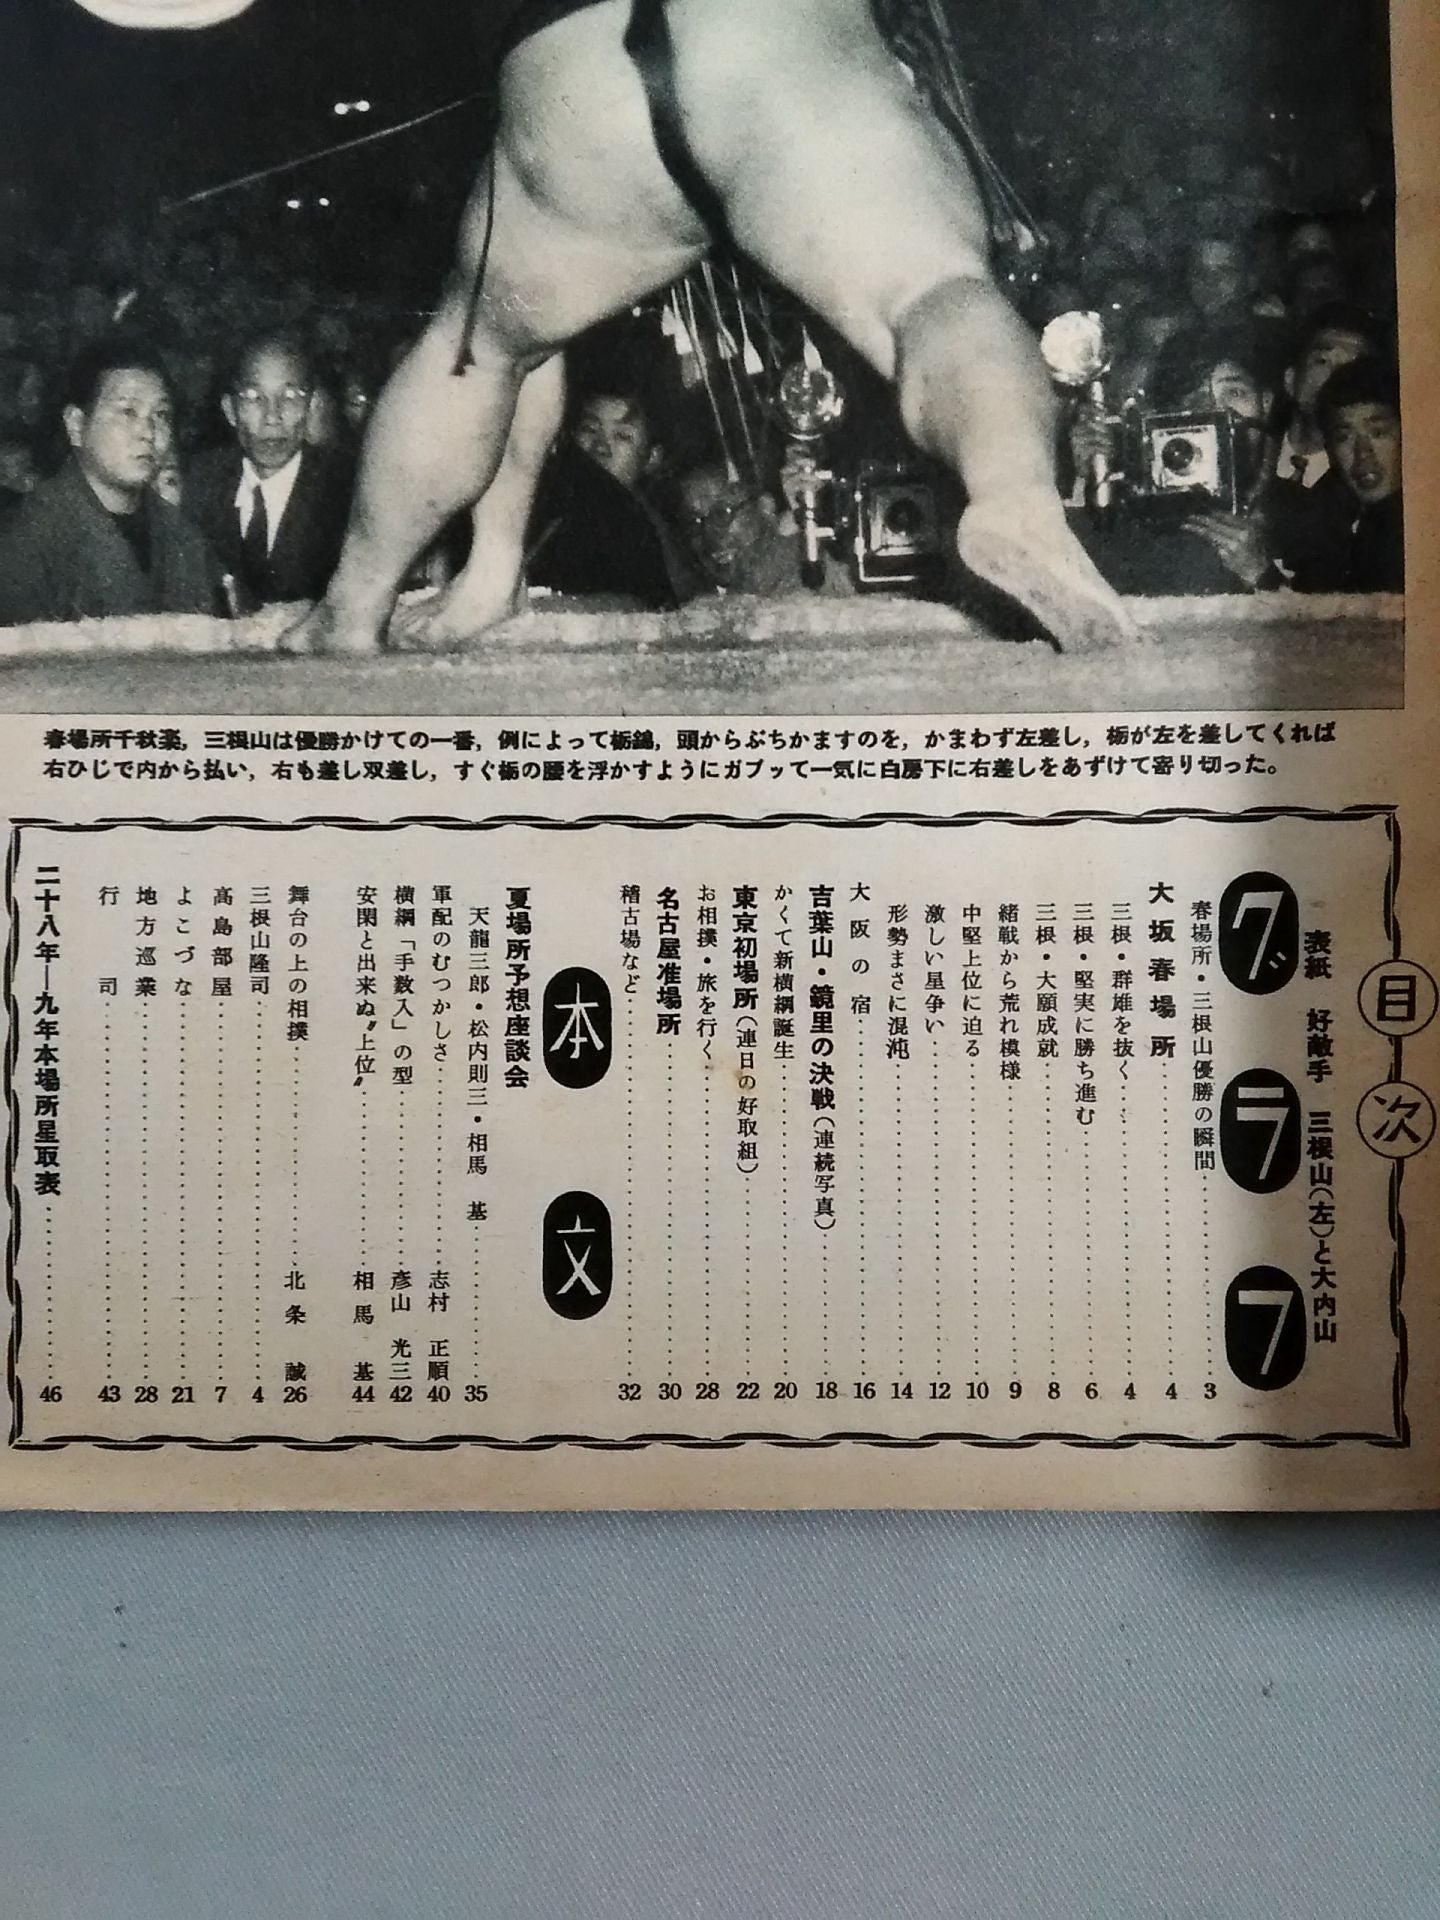 春場所千秋楽，三根山は優勝かけての一番，例によって栃錦，頭からぶちかますのを，かまわず左差し，栃が左を差してくれば
右ひじで内から払い，右も差し双差し，すぐ栃の腰を浮かすようにガブッて一気に白房下に右差しをあずけて寄り切った。
目次
表紙　好敵手　三根山（左）と大内山
グラフ
春場所・三根山優勝の瞬間…………3
大坂春場所…………4
三根・群雄を抜く…………4
三根・堅実に勝ち進む…………6
三根・大願成就…………8
緒戦から荒れ模様…………9
中堅上位に迫る…………10
激しい星争い…………12
形勢まさに混沌…………14
大阪の宿…………16
吉葉山・鏡里の決戦（連続写真）…………18
かくて新横綱誕生…………20
東京初場所（連日の好取組）…………22
お相撲・旅を行く…………28
名古屋准場所…………30
稽古場など…………32
本文
夏場所予想座談会
天龍三郎・松内則三・相馬　基…………35
軍配のむつかしさ…………志村　正順　40
横綱「手数入」の型…………彦山　光三　42
安閑と出来ぬ〝上位〟…………相馬　基　44
舞台の上の相撲…………北条　誠　26
三根山隆司…………4
高島部屋…………7
よこづな…………21
地方巡業…………28
行司…………43
二十八年―九年本場所星取表…………46